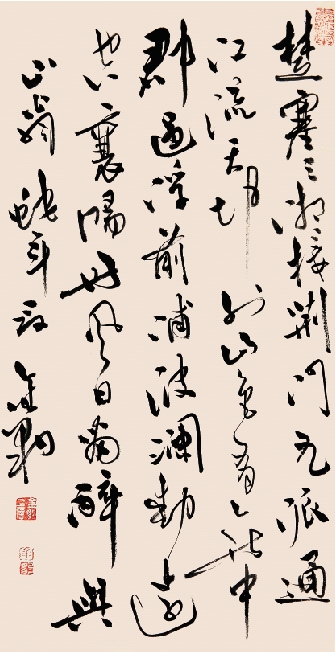 楚塞三湘接荆门九派通
江流天地外山色有无中
郡邑浮前浦波澜動遠
空襄陽好風日留醉與
山翁 蛇年